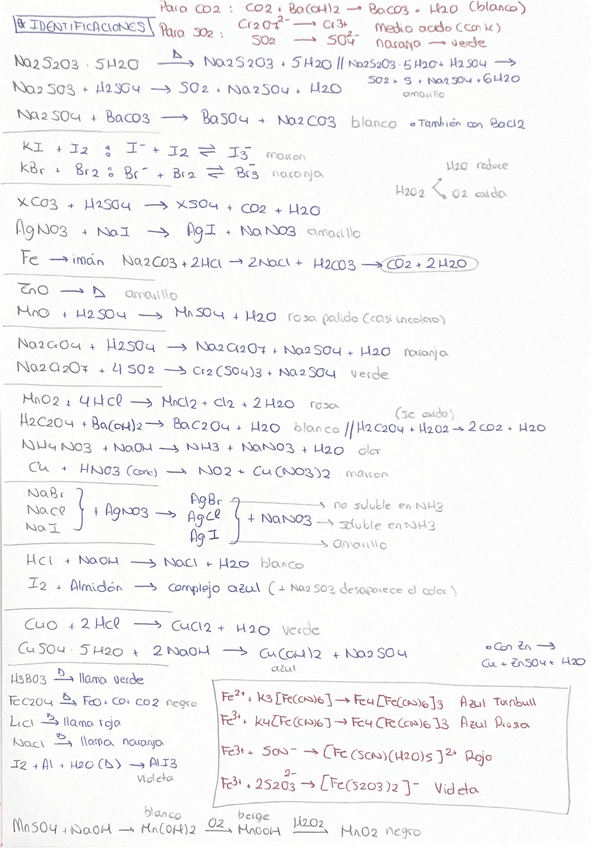 Para CO2 : CO2 + Ba(OH)2 → BaCO3 + H2O (blanco)
* IDENTIFICACIONES
Para SO2 : Cr2O7²⁻ → Cr³⁺ Medio acido (con K)
SO2 → SO4²⁻ naranja → verde
Na2S2O3 · 5H2O —Δ→ Na2S2O3 + 5H2O // Na2S2O3·5H2O + H2SO4 →
SO2 + S + Na2SO4 + 6H2O
amarillo
Na2SO3 + H2SO4 → SO2 + Na2SO4 + H2O
Na2SO4 + BaCO3 → BaSO4 + Na2CO3 blanco • También con BaCl2
KI + I2 : I⁻ + I2 ⇌ I3⁻ marron
KBr + Br2 : Br⁻ + Br2 ⇌ Br3⁻ naranja
H2O2 < H2O reduce
O2 oxida
XCO3 + H2SO4 → XSO4 + CO2 + H2O
AgNO3 + NaI → AgI + NaNO3 amarillo
Fe → imán Na2CO3 + 2HCl → 2NaCl + H2CO3 → CO2 + 2H2O
ZnO → Δ amarillo
MnO + H2SO4 → MnSO4 + H2O rosa palido (casi incoloro)
Na2CrO4 + H2SO4 → Na2Cr2O7 + Na2SO4 + H2O naranja
Na2Cr2O7 + 4SO2 → Cr2(SO4)3 + Na2SO4 verde
MnO2 + 4HCl → MnCl2 + Cl2 + 2H2O rosa
(se oxida)
H2C2O4 + Ba(OH)2 → BaC2O4 + H2O blanco // H2C2O4 + H2O2 → 2CO2 + H2O
NH4NO3 + NaOH → NH3 + NaNO3 + H2O olor
Cu + HNO3 (conc) → NO2 + Cu(NO3)2 marron
NaBr
NaCl } + AgNO3 →
NaI
AgBr → no soluble en NH3
AgCl } + NaNO3 → soluble en NH3
AgI → amarillo
HCl + NaOH → NaCl + H2O blanco
I2 + Almidón → complejo azul (+ Na2SO3 desaparece el color)
CuO + 2HCl → CuCl2 + H2O verde
CuSO4 · 5H2O + 2NaOH → Cu(OH)2 + Na2SO4
azul
• Con Zn →
Cu + ZnSO4 + H2O
H3BO3 —Δ→ llama verde
FeC2O4 —Δ→ FeO + CO + CO2 negro
LiCl —Δ→ llama roja
NaCl —Δ→ llama naranja
I2 + Al + H2O (Δ) → AlI3
violeta
Fe²⁺ + K3[Fe(CN)6] → Fe4[Fe(CN)6]3 Azul Turnbull
Fe³⁺ + K4[Fe(CN)6] → Fe4[Fe(CN)6]3 Azul Prusia
Fe³⁺ + SCN⁻ → [Fe(SCN)(H2O)5]²⁺ Rojo
Fe³⁺ + 2S2O3²⁻ → [Fe(S2O3)2]⁻ Violeta
blanco beige
MnSO4 + NaOH → Mn(OH)2 —O2→ MnOOH —H2O2→ MnO2 negro